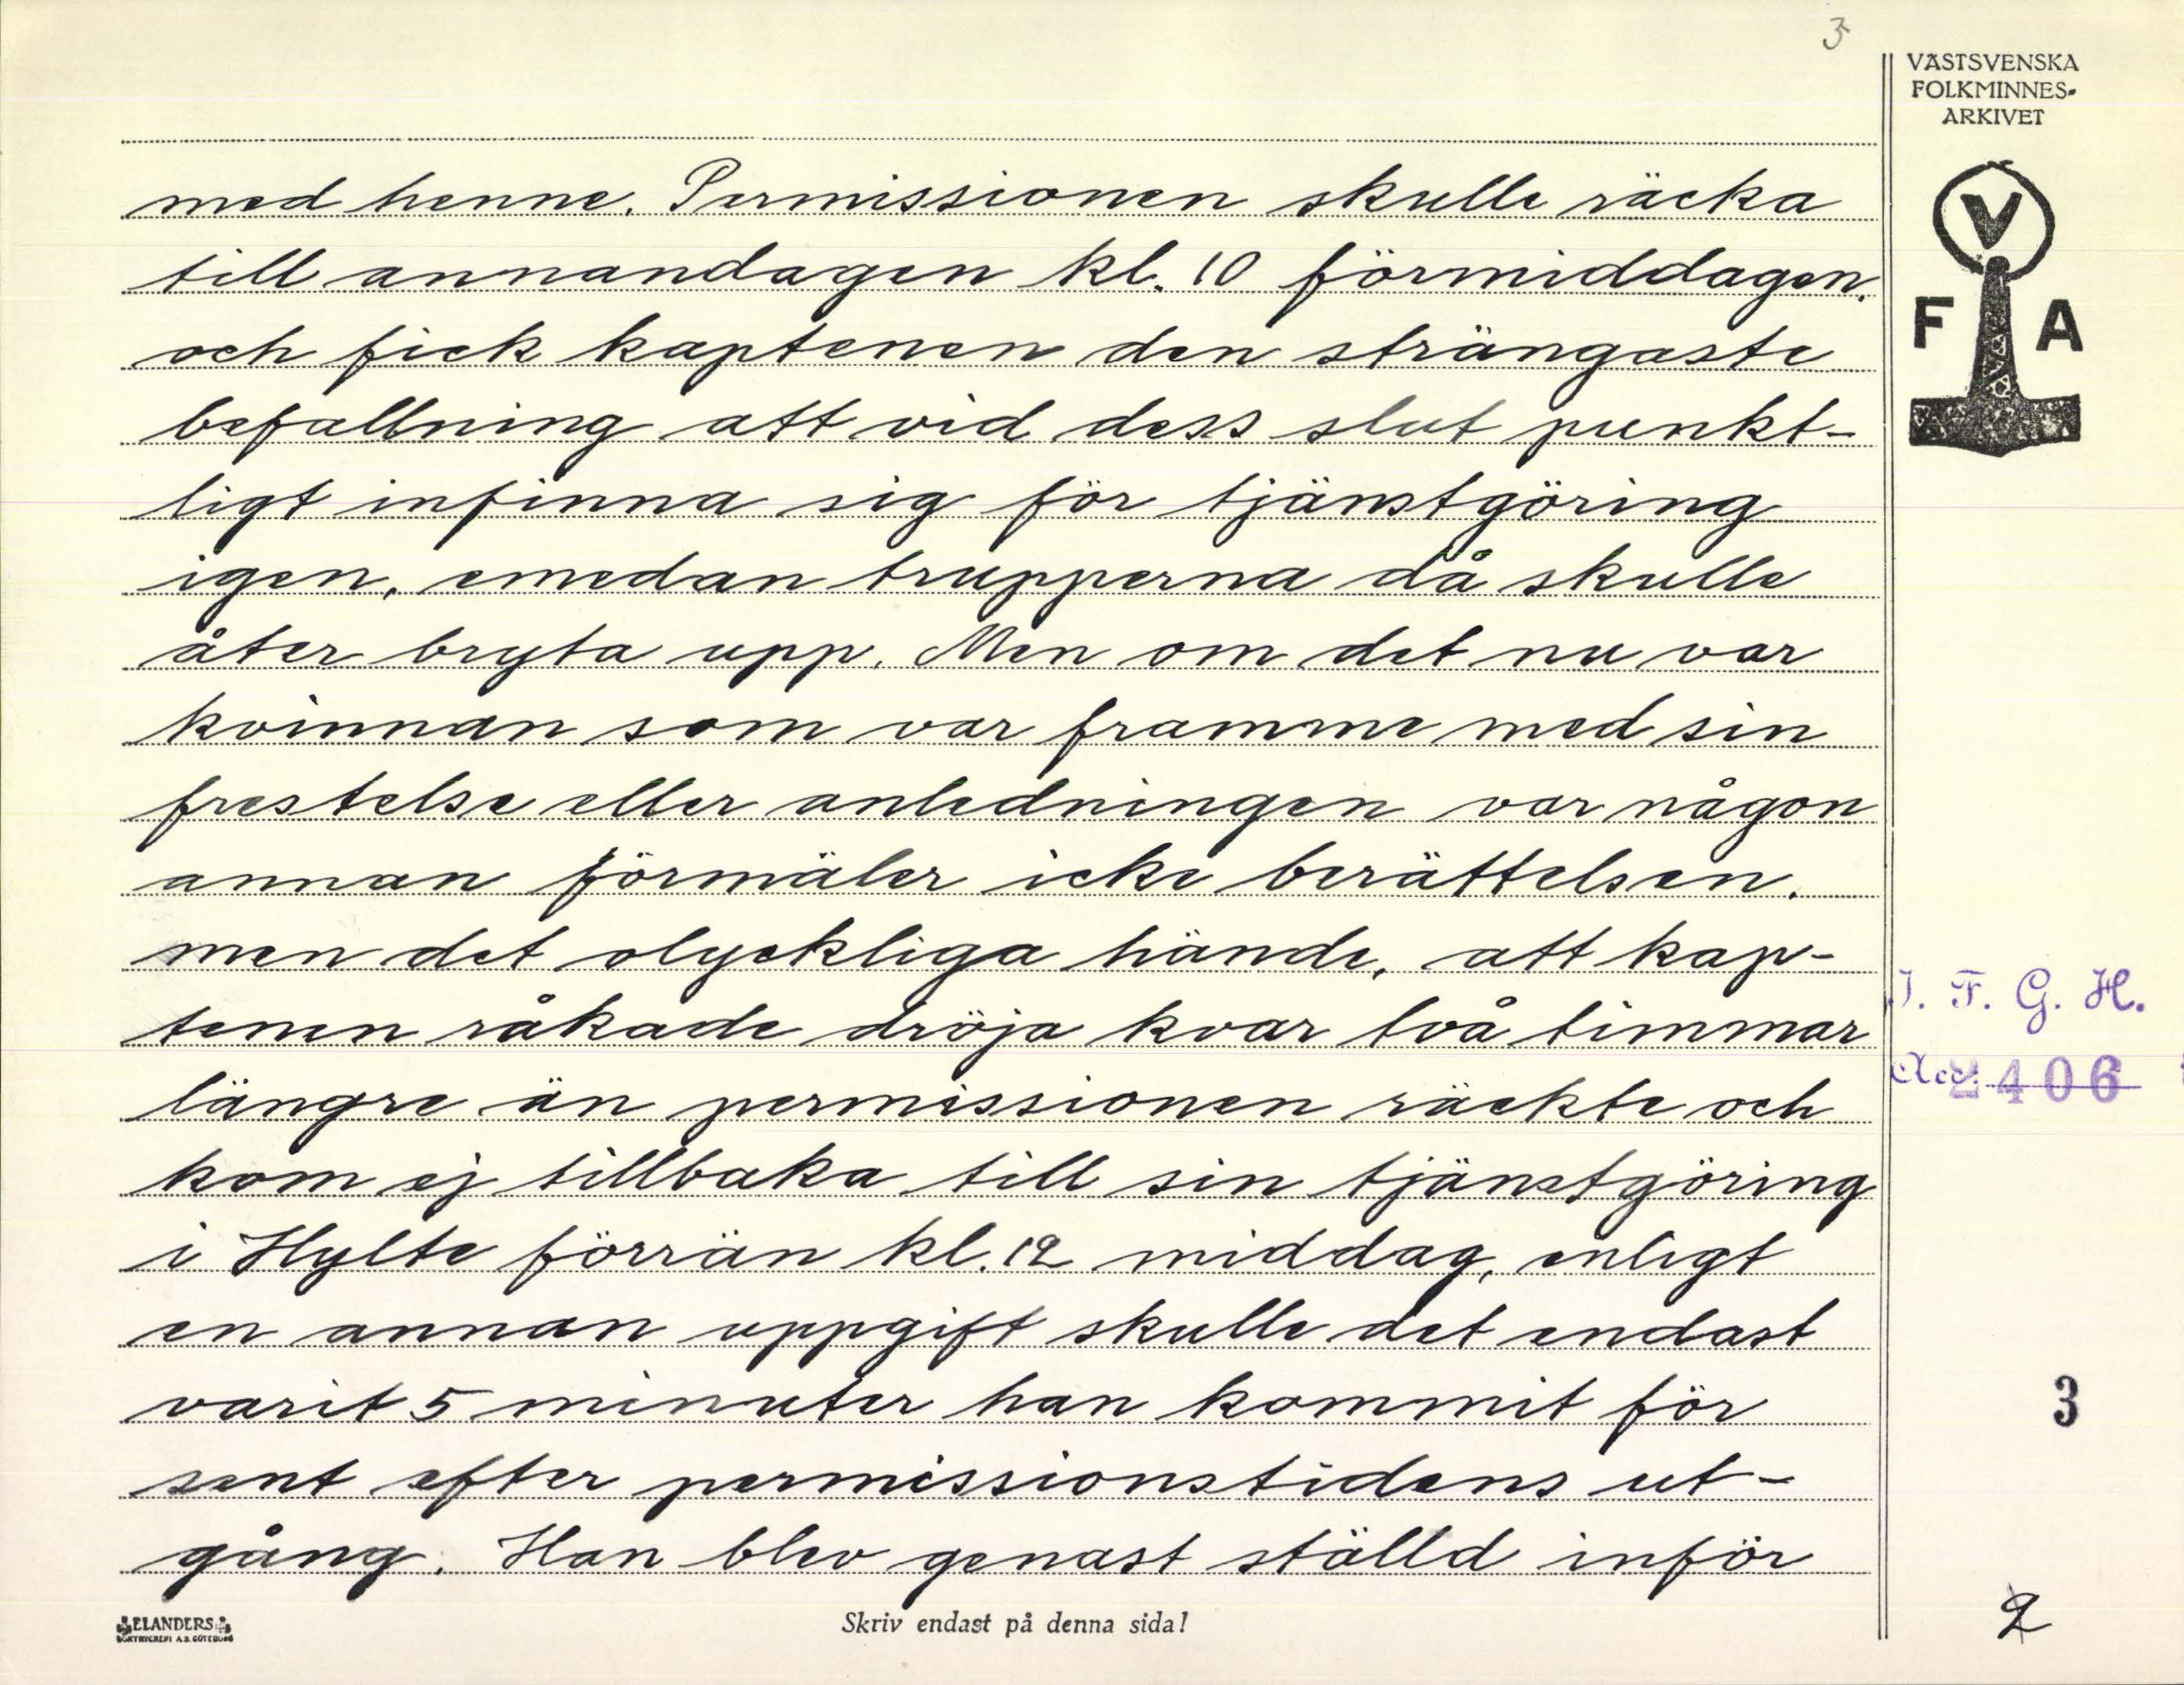 3
VÄSTSVENSKA
FOLKMINNES-
ARKIVET
V
F A
med henne. Permissionen skulle räcka
till annandagen kl. 10 förmiddagen,
och fick kaptenen den strängaste
befallning att vid dess slut punkt-
ligt infinna sig för tjänstgöring
igen, emedan trupperna då skulle
åter bryta upp. Men om det nu var
kvinnan som var framme med sin
frestelse eller anledningen var någon
annan förmäler icke berättelsen,
men det olyckliga hände, att kap-
tenen råkade dröja kvar två timmar
längre än permissionen räckte och
kom ej tillbaka till sin tjänstgöring
i Hylte förrän kl. 12 middag, enligt
en annan uppgift skulle det endast
varit 5 minuter han kommit för
sent efter permissionstidens ut-
gång. Han blev genast ställd inför
I. F. G. H.
Acc. 2406
3
2
ELANDERS
BOKTRYCKERI A.B. GÖTEBORG
Skriv endast på denna sida!